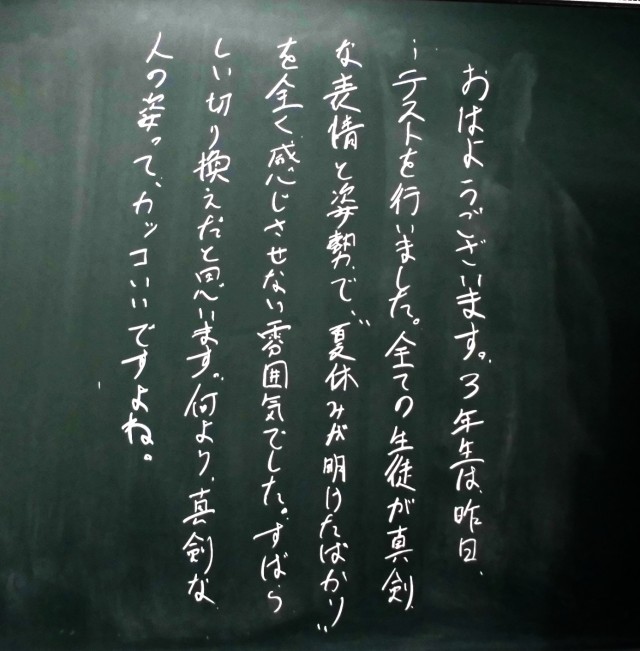 おはようございます。3年生は、昨日、
テストを行いました。全ての生徒が真剣
な表情と姿勢で、〝夏休みが明けたばかり〟
を全く感じさせない雰囲気でした。すばら
しい切り換えだと思います。何より、真剣な
人の姿って、カッコいいですよね。